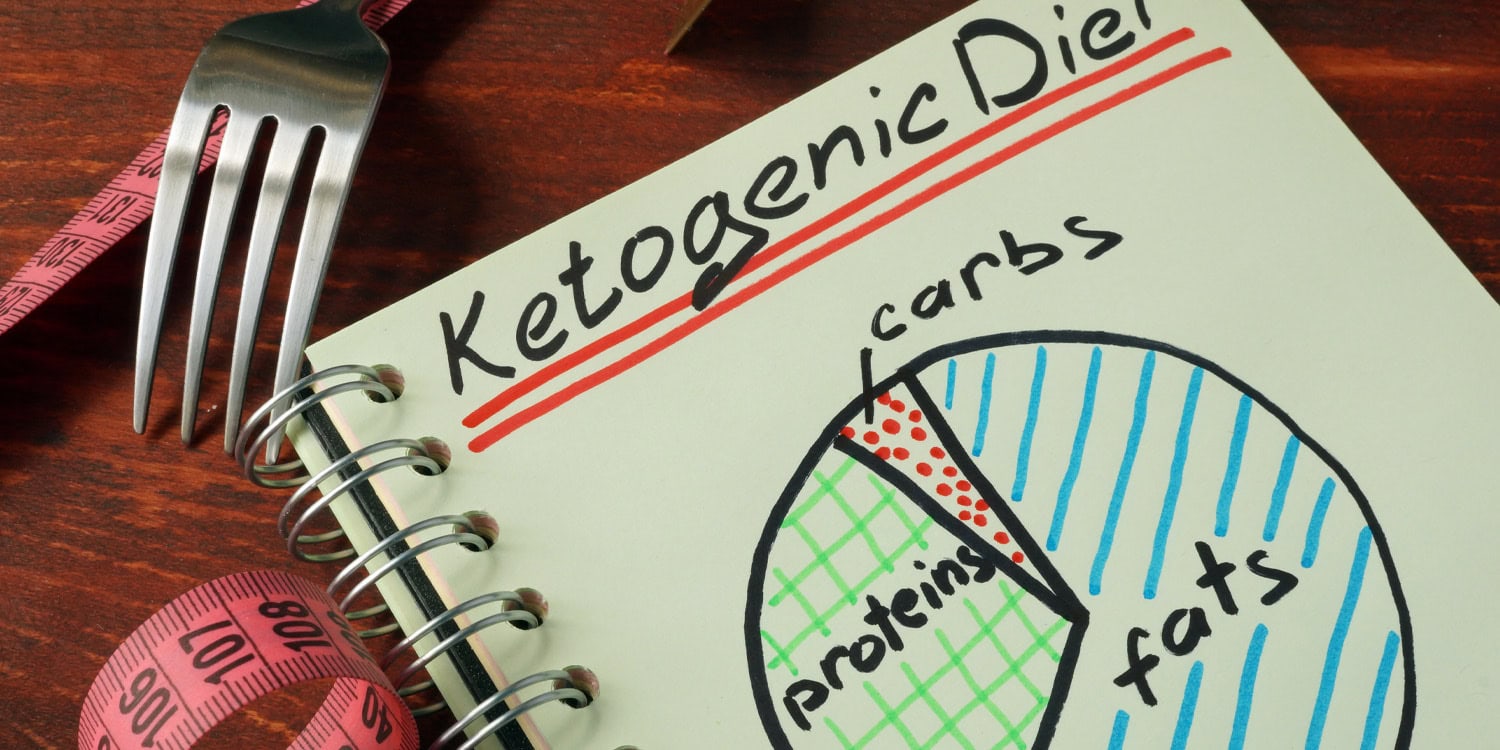 Ketogenic Diet
carbs
fats
proteins
131
130
106
107
108
40